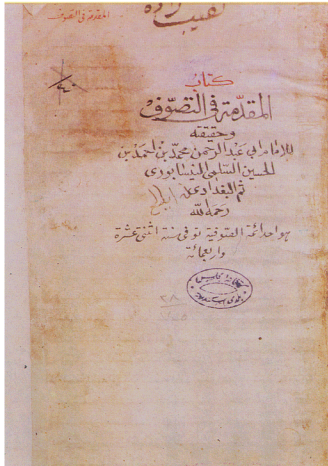 المقدمة في التصوف
كتاب
المقدمة في التصوف
وحقيقته
للامام ابي عبد الرحمن محمد بن احمد بن
الحسين السلمي النيسابوري
ثم البغدادي
رحمه الله
هو احد ائمة الصوفية توفي سنة اثنتى عشرة
واربعمائة
٢٨